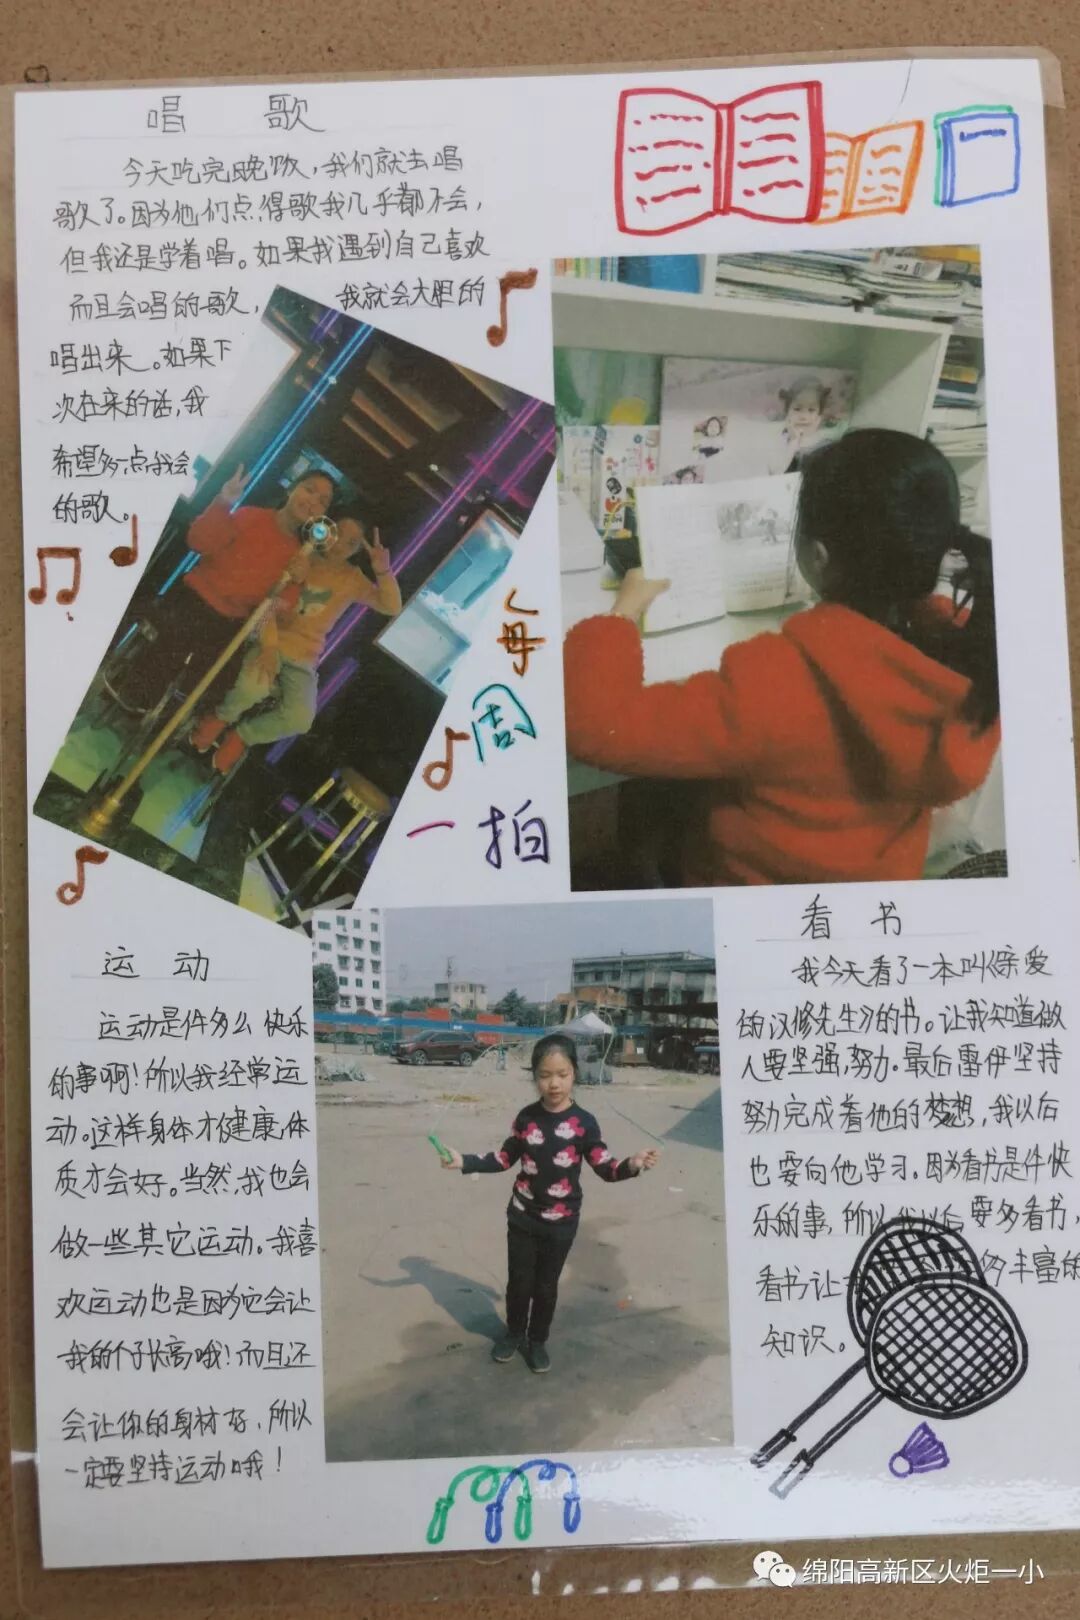 唱 歌
今天吃完晚饭，我们就去唱
歌了。因为他们点得歌我几乎都不会，
但我还是学着唱。如果我遇到自己喜欢
而且会唱的歌，我就会大胆的
唱出来。如果下
次在来的话，我
希望多一点我会
的歌。
每
周
一 拍
看 书
我今天看了一本叫《亲爱
的汉修先生》的书。让我知道做
人要坚强，努力。最后雷伊坚持
努力完成着他的梦想，我以后
也要向他学习。因为看书是件快
乐的事，所以我以后要多看书，
看书让 多丰富的
知识。
运 动
运动是件多么快乐
的事啊！所以我经常运
动。这样身体才健康，体
质才会好。当然，我也会
做一些其它运动。我喜
欢运动也是因为它会让
我的个子长高哦！而且还
会让你的身材好，所以
一定要坚持运动哦！
绵阳高新区火炬一小